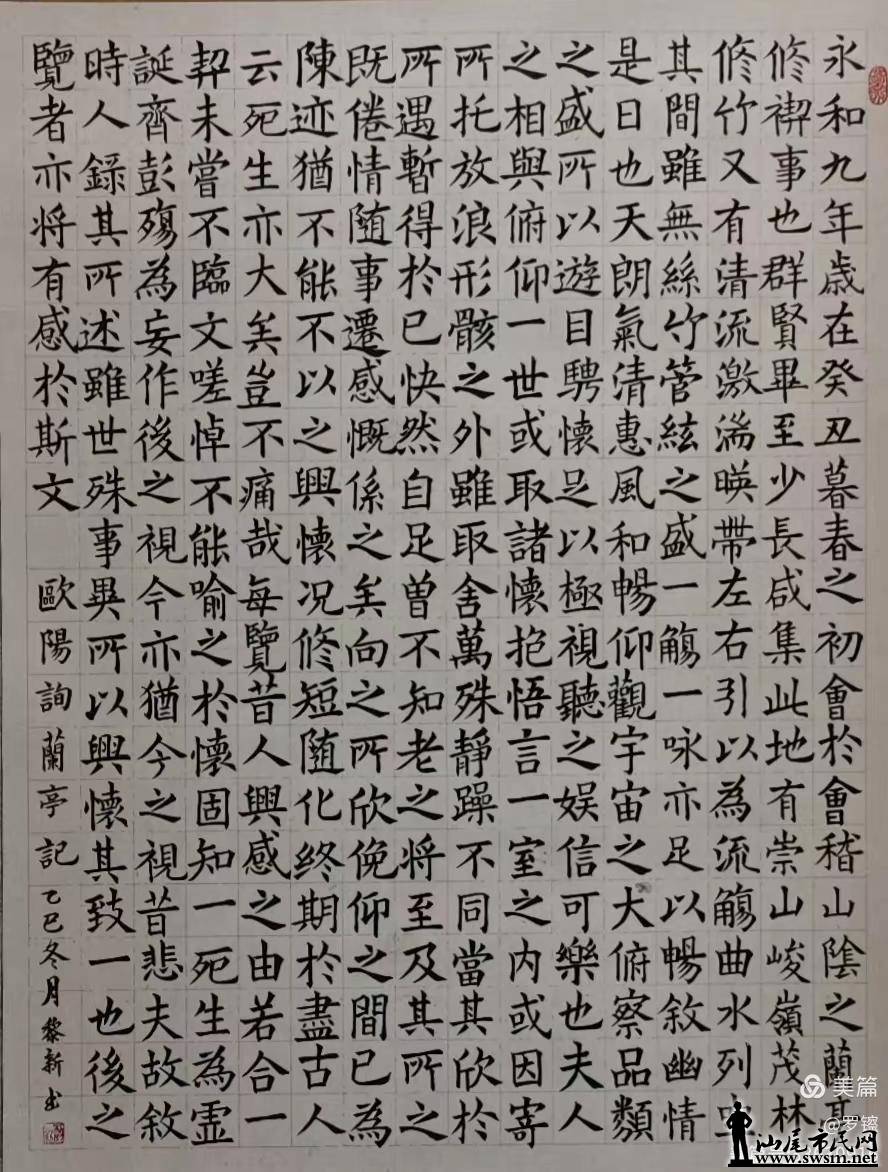 永和九年歲在癸丑暮春之初會於會稽山陰之蘭亭
修禊事也群賢畢至少長咸集此地有崇山峻嶺茂林
修竹又有清流激湍暎帶左右引以為流觴曲水列坐
其間雖無絲竹管絃之盛一觴一咏亦足以暢敘幽情
是日也天朗氣清惠風和暢仰觀宇宙之大俯察品類
之盛所以遊目騁懷足以極視聽之娱信可樂也夫人
之相與俯仰一世或取諸懷抱悟言一室之内或因寄
所托放浪形骸之外雖取舍萬殊靜躁不同當其欣於
所遇暫得於己快然自足曽不知老之將至及其所之
既倦情随事遷感慨係之矣向之所欣俛仰之間已為
陳迹猶不能不以之興懷况修短随化終期於盡古人
云死生亦大矣豈不痛哉每覽昔人興感之由若合一
契未嘗不臨文嗟悼不能喻之於懷固知一死生為虛
誕齊彭殤為妄作後之視今亦猶今之視昔悲夫故敘
時人録其所述雖世殊事異所以興懷其致一也後之
覽者亦将有感於斯文 歐陽詢蘭亭記 乙巳冬月黎新书
美篇
@罗镲
汕尾市民网
www.swsm.net